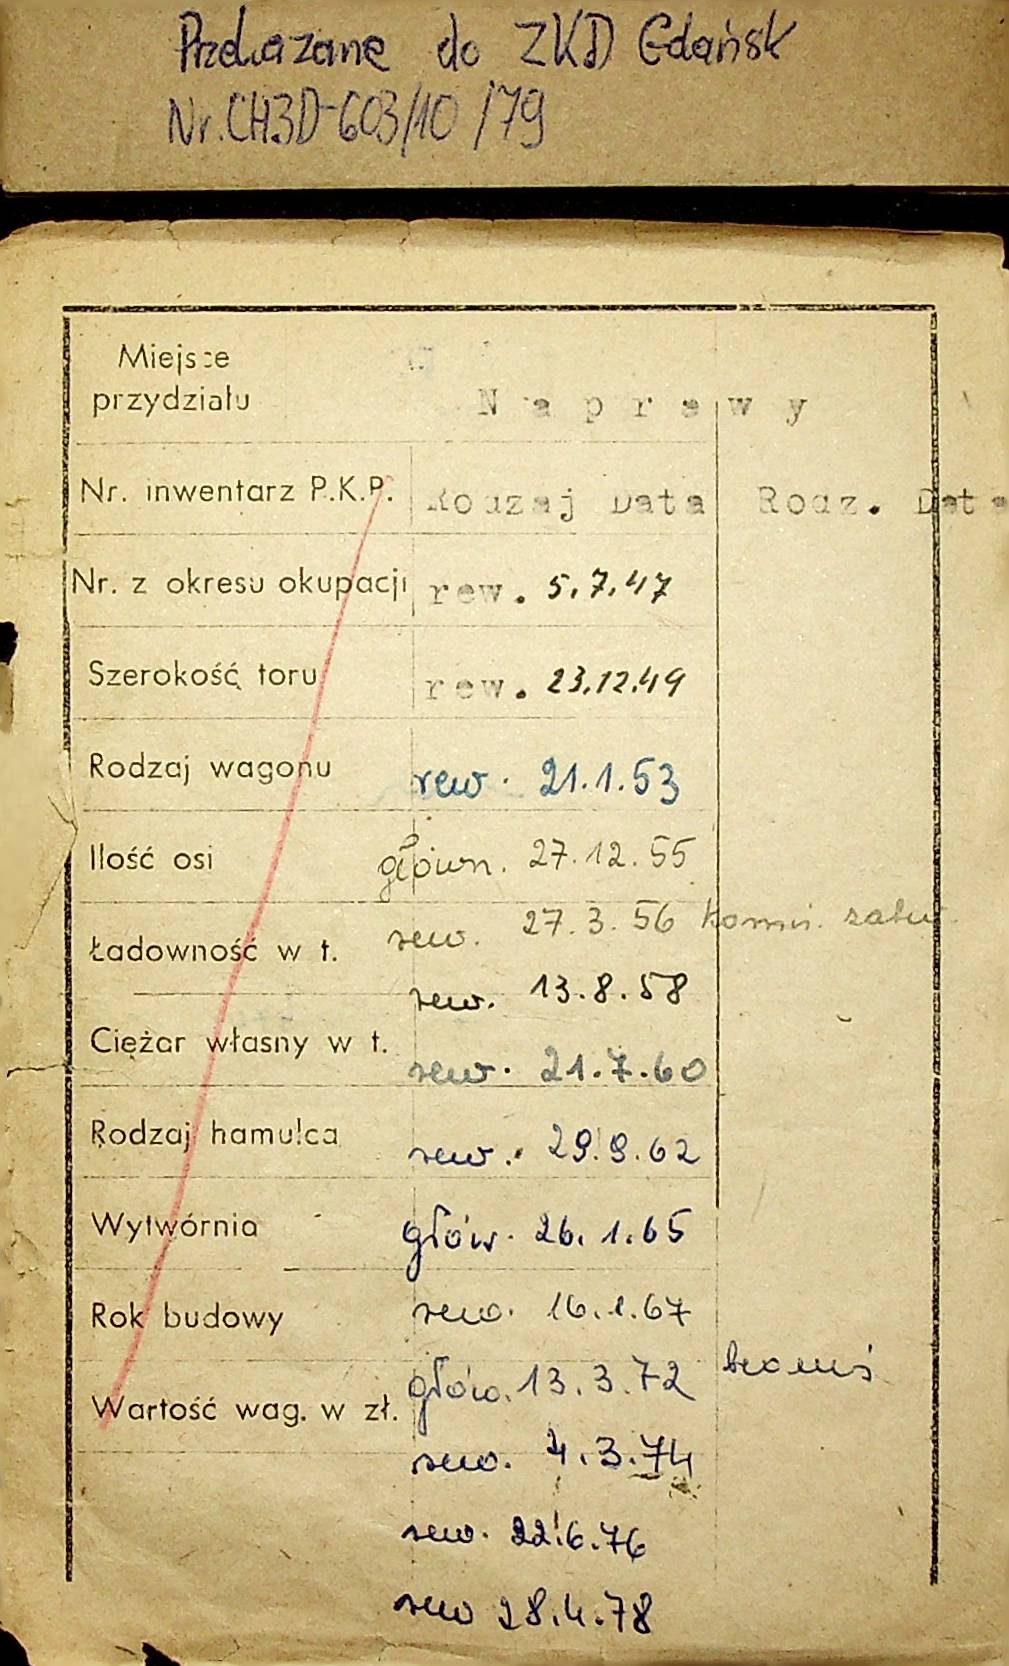 Przekazane do ZKD Gdańsk
Nr. CH3D-603/10/79
Miejsce
przydziału
Naprawy
Nr. inwentarz P.K.P. Rodzaj Data Rodz. Data
Nr. z okresu okupacji rew. 5.7.47
Szerokość toru rew. 23.12.49
Rodzaj wagonu rew. 21.1.53
Ilość osi główn. 27.12.55
rew. 27.3.56
Ładowność w t.
rew. 13.8.58
Ciężar własny w t. rew. 21.7.60
Rodzaj hamulca rew. 29.9.62
Wytwórnia głów. 26.1.65
Rok budowy rew. 16.1.67
głów. 13.3.72
Wartość wag. w zł.
rew. 4.3.74
rew. 22.6.76
rew 28.4.78